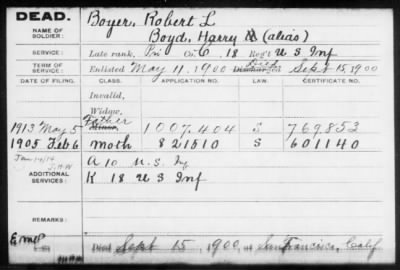 DEAD.
NAME OF SOLDIER:
Boyer, Robert L
Boyd, Harry M (alias)
SERVICE:
Late rank, Pri Co. C, 18 Reg't U S Inf
TERM OF SERVICE:
Enlisted May 11, 1900 Discharged Died Sept 15, 1900
DATE OF FILING. CLASS. APPLICATION NO. LAW. CERTIFICATE NO.
Invalid,
Widow,
1913 May 5 Father Minor, 1007.404 S 769.853
1905 Feb 6 Moth 821510 S 601140
ADDITIONAL SERVICES:
A 10 U.S. Inf
K 18 U S Inf
REMARKS:
Died Sept 15, 1900, at San Francisco, Calif